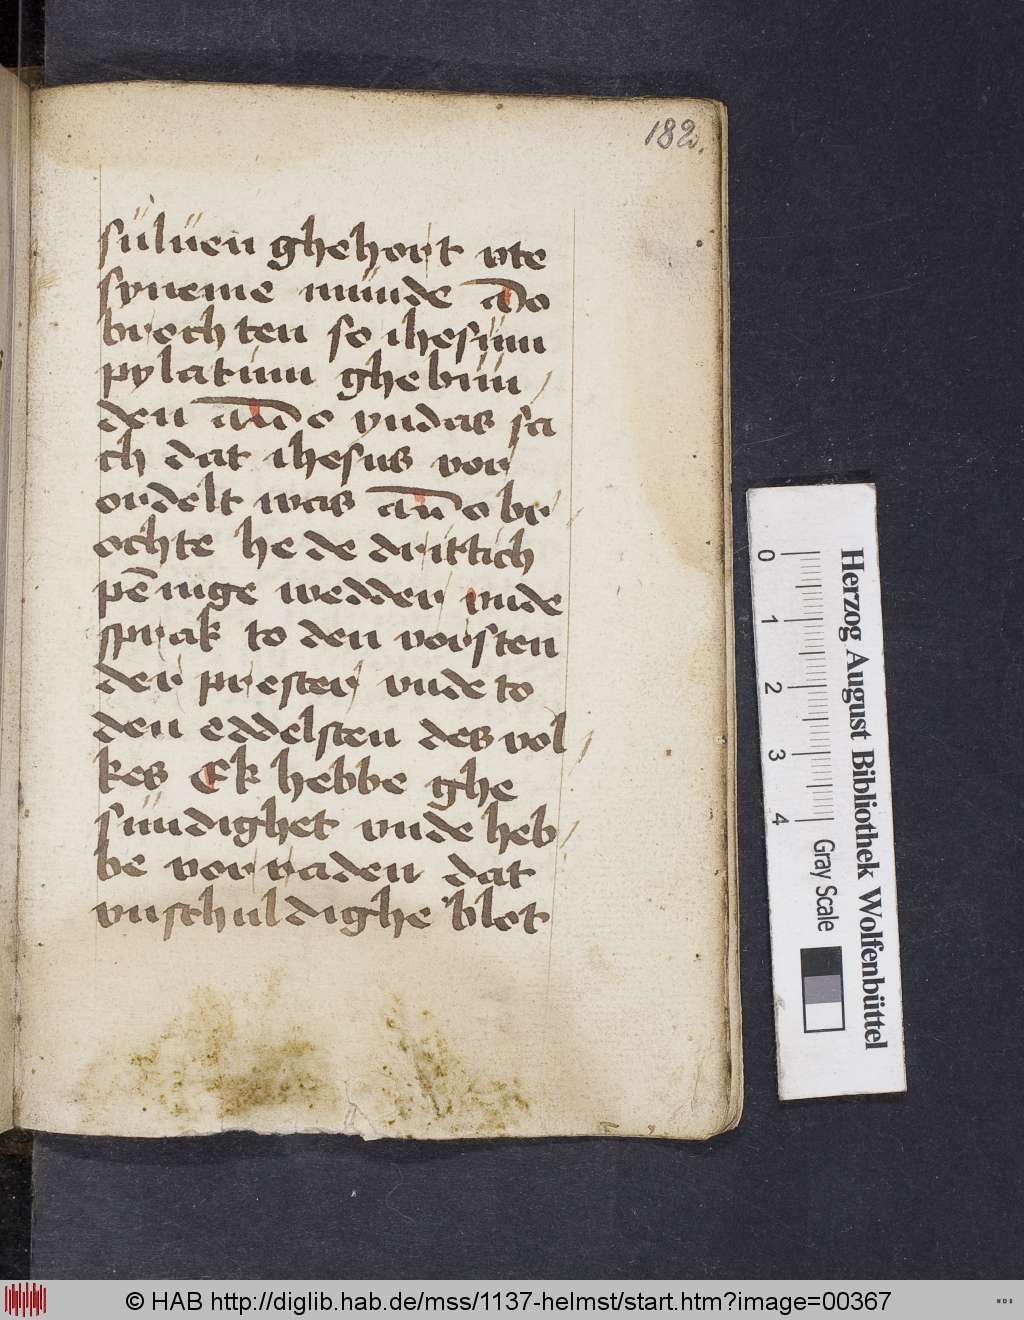 182.
sülüen ghehort vte
syneme münde a̅do
brochten se ihesüm
pylatüm ghebün/
den a̅ndo yudas sa
ch dat ihesus vor
ordelt was a̅ndo br/
ochte he de drittich
pēninge wedder vnde
sprak to den vorsten
der prester vnde to
den eddelsten des vol/
kes Ek hebbe ghe
sündighet vnde heb/
be vorraden dat
vnschuldighe blot
0 1 2 3 4
Gray Scale
Herzog August Bibliothek Wolfenbüttel
© HAB http://diglib.hab.de/mss/1137-helmst/start.htm?image=00367